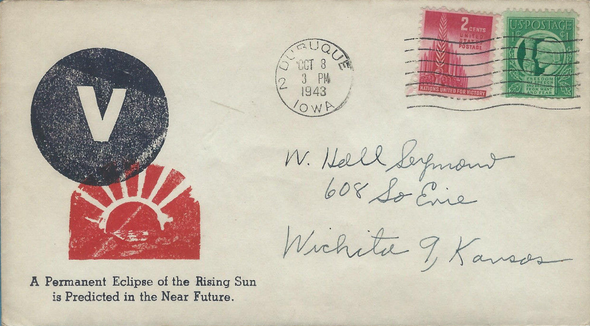 V
A Permanent Eclipse of the Rising Sun
is Predicted in the Near Future.
DUBUQUE
OCT 8
3 PM
1943
2
IOWA
2 CENTS
UNITED
STATES
POSTAGE
NATIONS UNITED FOR VICTORY
U.S. POSTAGE
W. Hall Seymour
608 So Erie
Wichita 9, Kansas